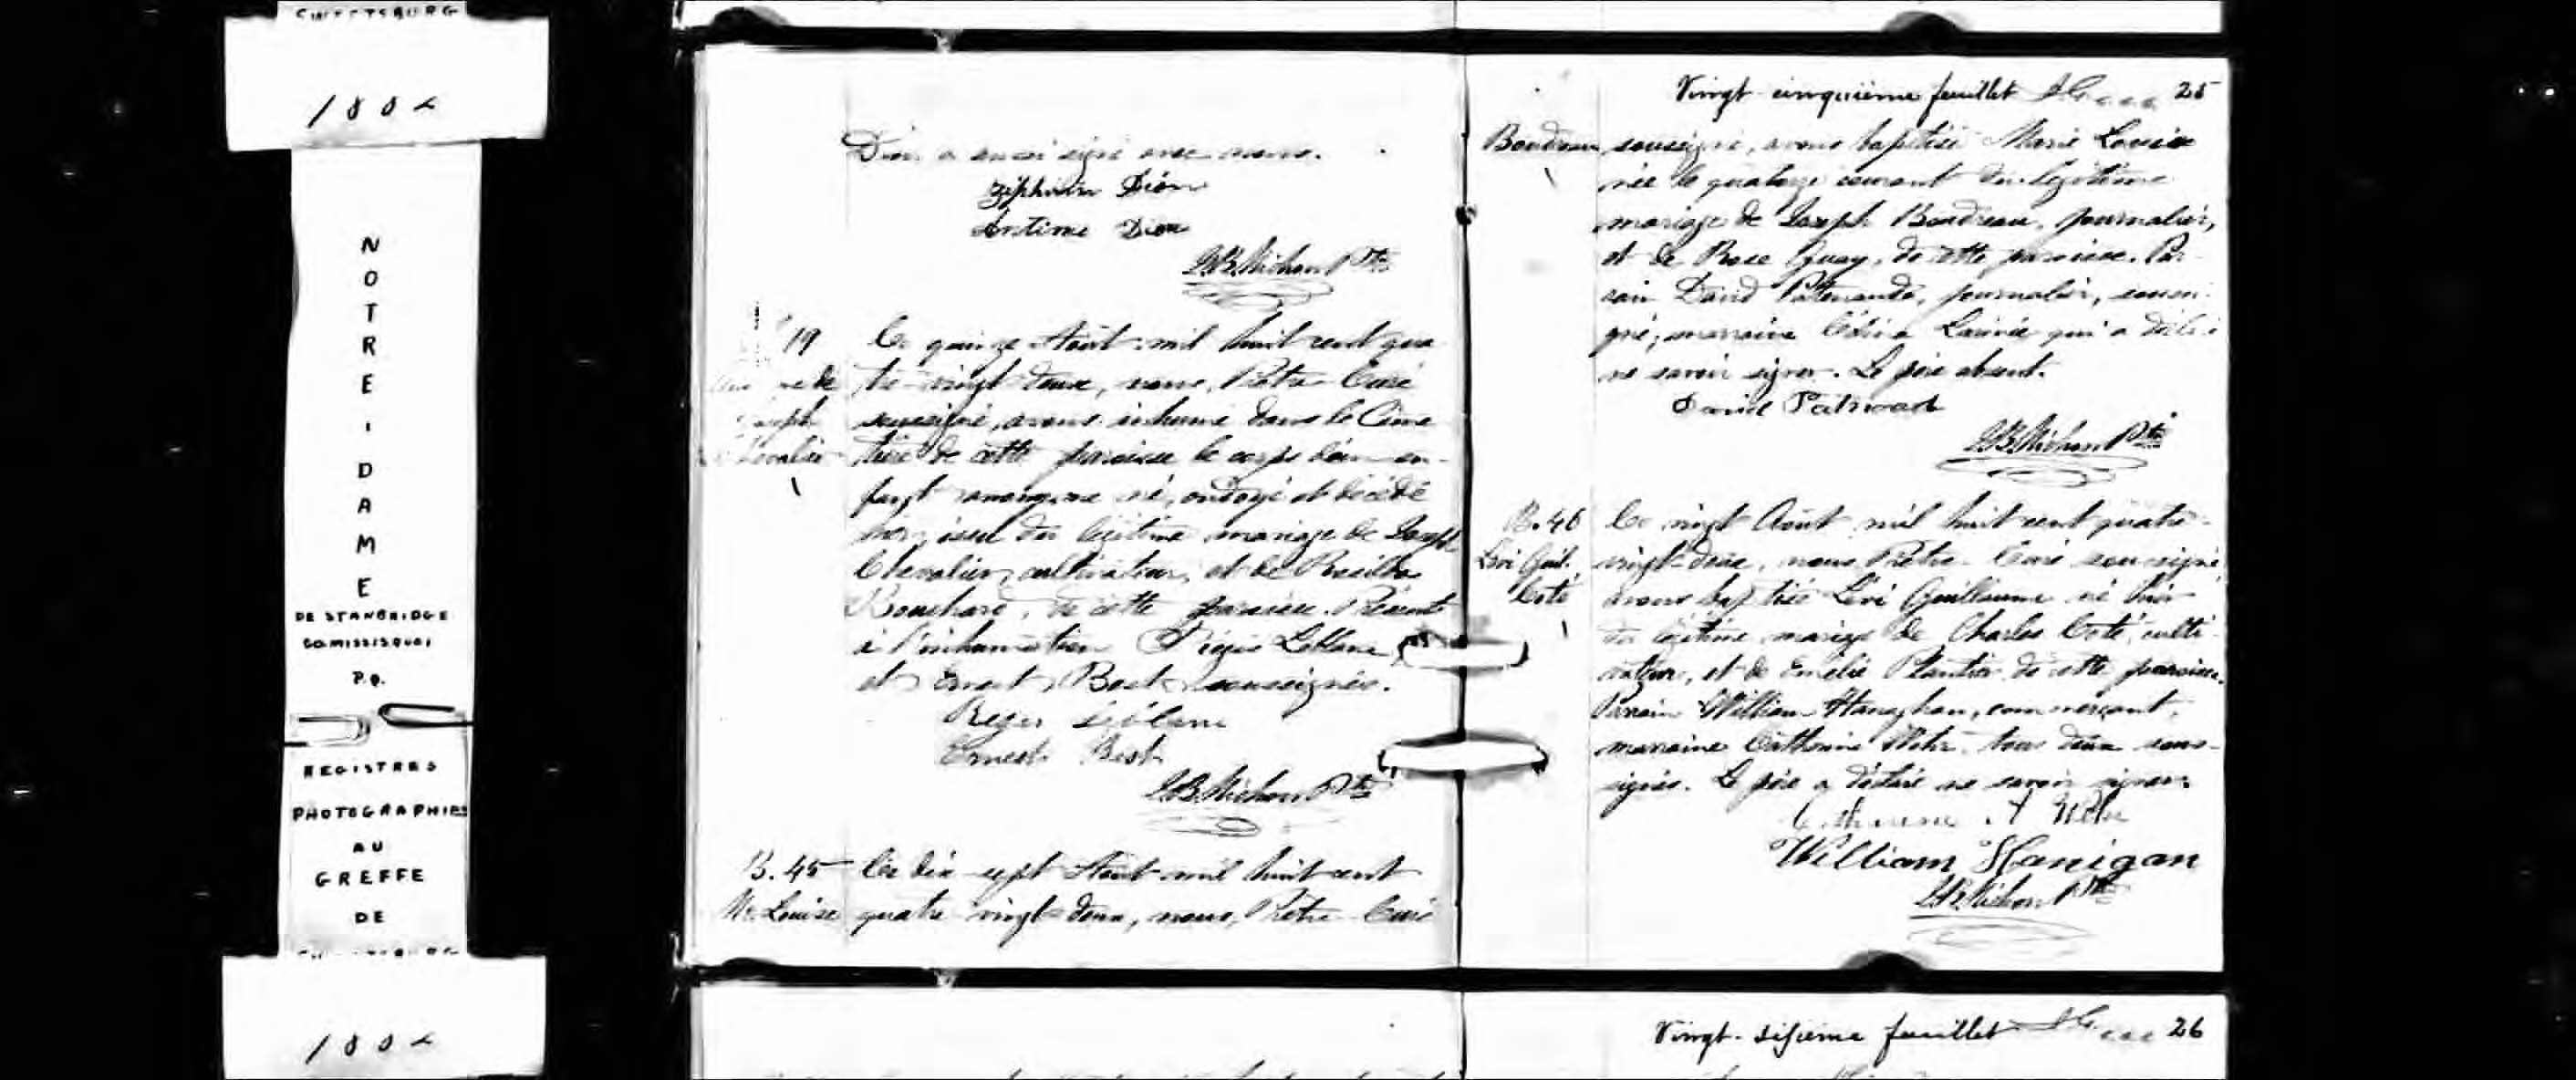 SWEETSBURG
1882
NOTRE-DAME
DE STANBRIDGE
CO MISSISQUOI
P.Q.
REGISTRES
PHOTOGRAPHIÉS
AU
GREFFE
DE
1882
Dion a aussi signé avec nous.
Zéphirin Dion
Antime Dion
Ptre
19
Ce quinze Août mil huit cent qua
tre-vingt-deux, nous, Prêtre Curé
Joseph
soussigné, avons inhumé dans le Cime
Chevalier
tière de cette paroisse le corps d'un en-
fant anonyme né, ondoyé et décédé
hier, issu du légitime mariage de Joseph
Chevalier, cultivateur, et de
Bouchard, de cette paroisse. Présents
à l'inhumation Régis Leblanc
et Ernest Best soussignés.
Regis Leblanc
Ernest Best
Ptre
B. 45
Ce dix-sept Août mil huit cent
M. Louise
quatre-vingt-deux, nous, Prêtre Curé
Vingt-cinquième feuillet 25
Boudreau
soussigné, avons baptisé Marie Louise
née le quatorze courant du légitime
mariage de Joseph Boudreau, journalier,
et de Rose Guay, de cette paroisse. Par-
rain David Patenaude, journalier, soussi-
gné, marraine Larivée qui a déclaré
ne savoir signer. Le père absent.
David
Ptre
B. 46
Ce vingt Août mil huit cent quatre-
Lévi Guil.
vingt-deux, nous Prêtre Curé soussigné
Coté
avons baptisé Lévi Guillaume né hier
du légitime mariage de Charles Coté, culti-
vateur, et de Emélie Plantier de cette paroisse.
Parrain William Hanaghan, commerçant,
marraine Catherine tous deux sous-
signés. Le père a déclaré ne savoir signer.
Catherine A
William Hanigan
Ptre
Vingt-sixième feuillet 26